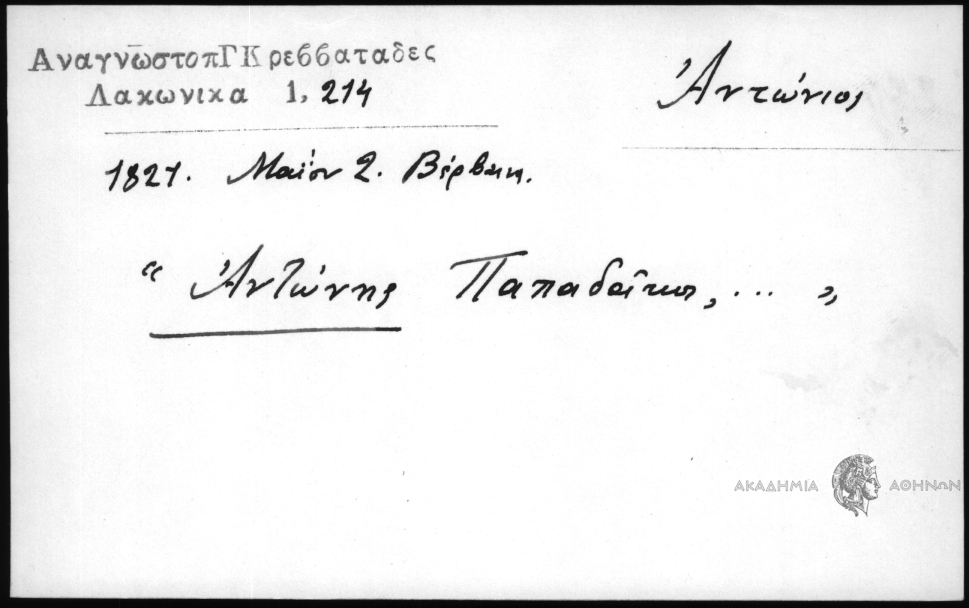 ΑναγνωστοπΓΚρεββαταδες
Λακωνικα 1, 214
Ἀντώνιος
1821. Μαΐου 2. Βέρβενα.
“ Ἀντώνης Παπαδαῖκος, ... „
ΑΚΑΔΗΜΙΑ ΑΘΗΝΩΝ